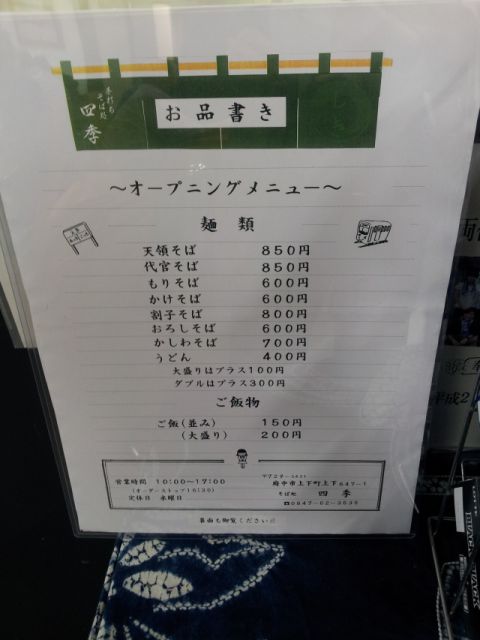 手打ち
そば処
四季
お品書き
～オープニングメニュー～
麺類
天領そば 850円
代官そば 850円
もりそば 600円
かけそば 600円
割子そば 800円
おろしそば 600円
かしわそば 700円
うどん 400円
大盛りはプラス100円
ダブルはプラス300円
ご飯物
ご飯(並み) 150円
(大盛り) 200円
営業時間 10:00～17:00
(オーダーストップ16:30)
定休日 水曜日
府中市上下町上下647-1
そば処 四季
☎0847-62-3639
裏面も御覧ください
平成2